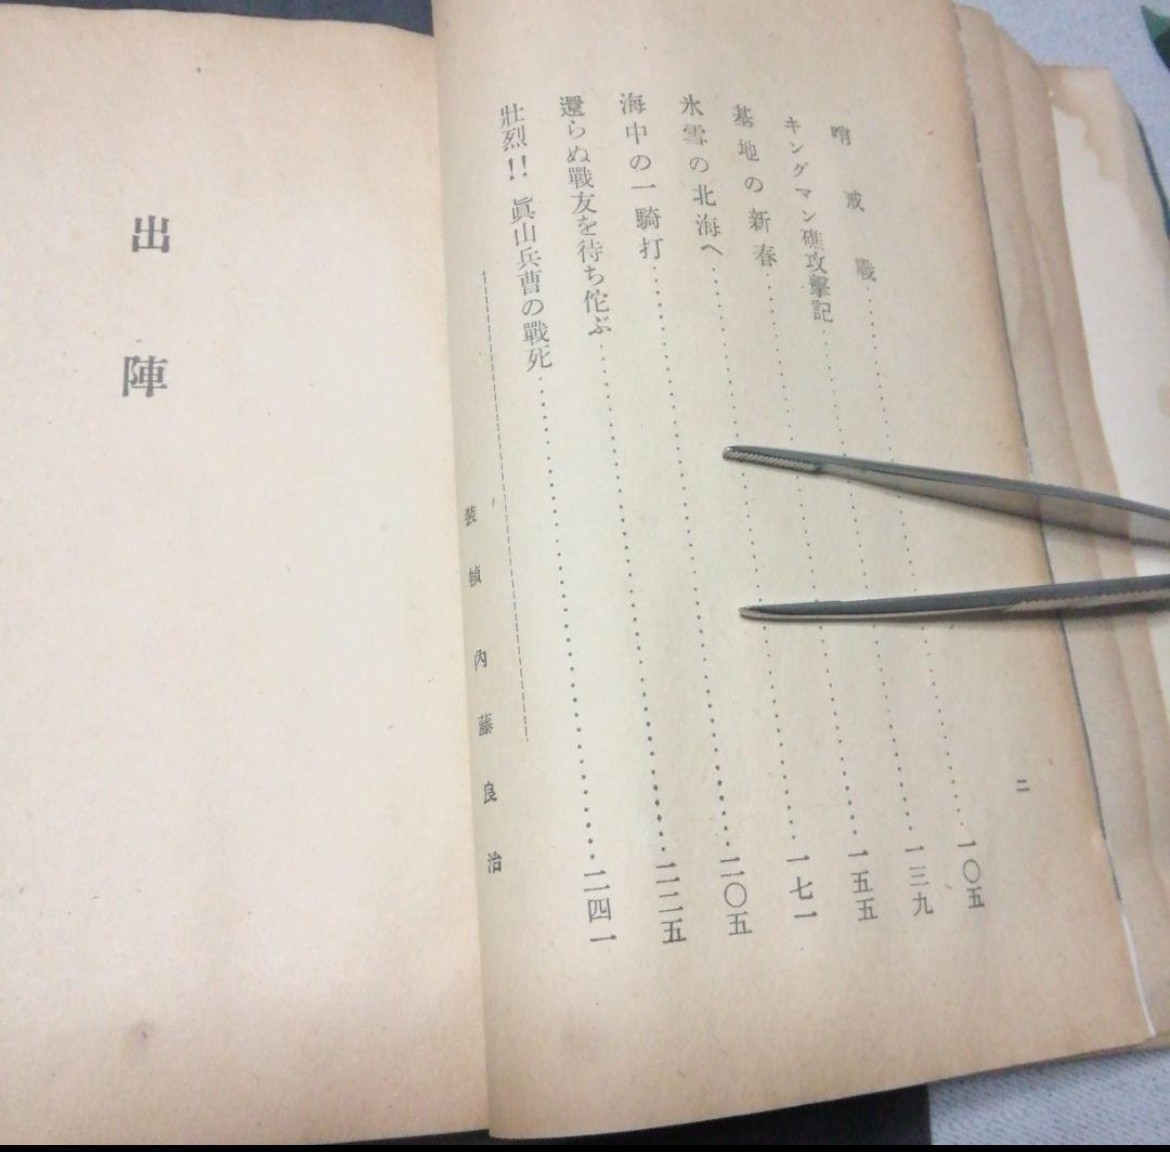 二
哨戒戰……一〇五
キングマン礁攻擊記……一三九
基地の新春……一五五
氷雪の北海へ……一七一
海中の一騎打……二〇五
還らぬ戰友を待ち佗ぶ……二二五
壯烈!! 眞山兵曹の戰死……二四一
裝幀 內藤良治
出陣